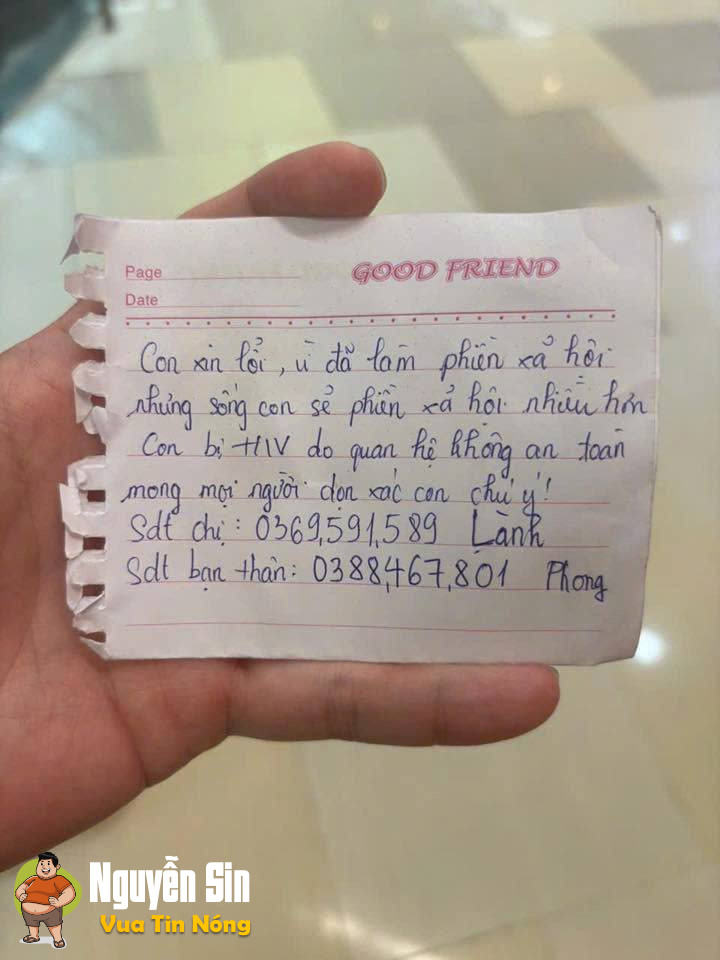 Page
GOOD FRIEND
Date
Con xin lổi, vì đã làm phiền xả hội
nhưng sống con sẻ phiền xả hội nhiều hơn
Con bị HIV do quan hệ không an toàn
mong mọi người dọn xác con chú ý!
Sdt chị: 0369,591,589 Lành
Sdt bạn thân: 0388,467,801 Phong
Nguyễn Sin
Vua Tin Nóng